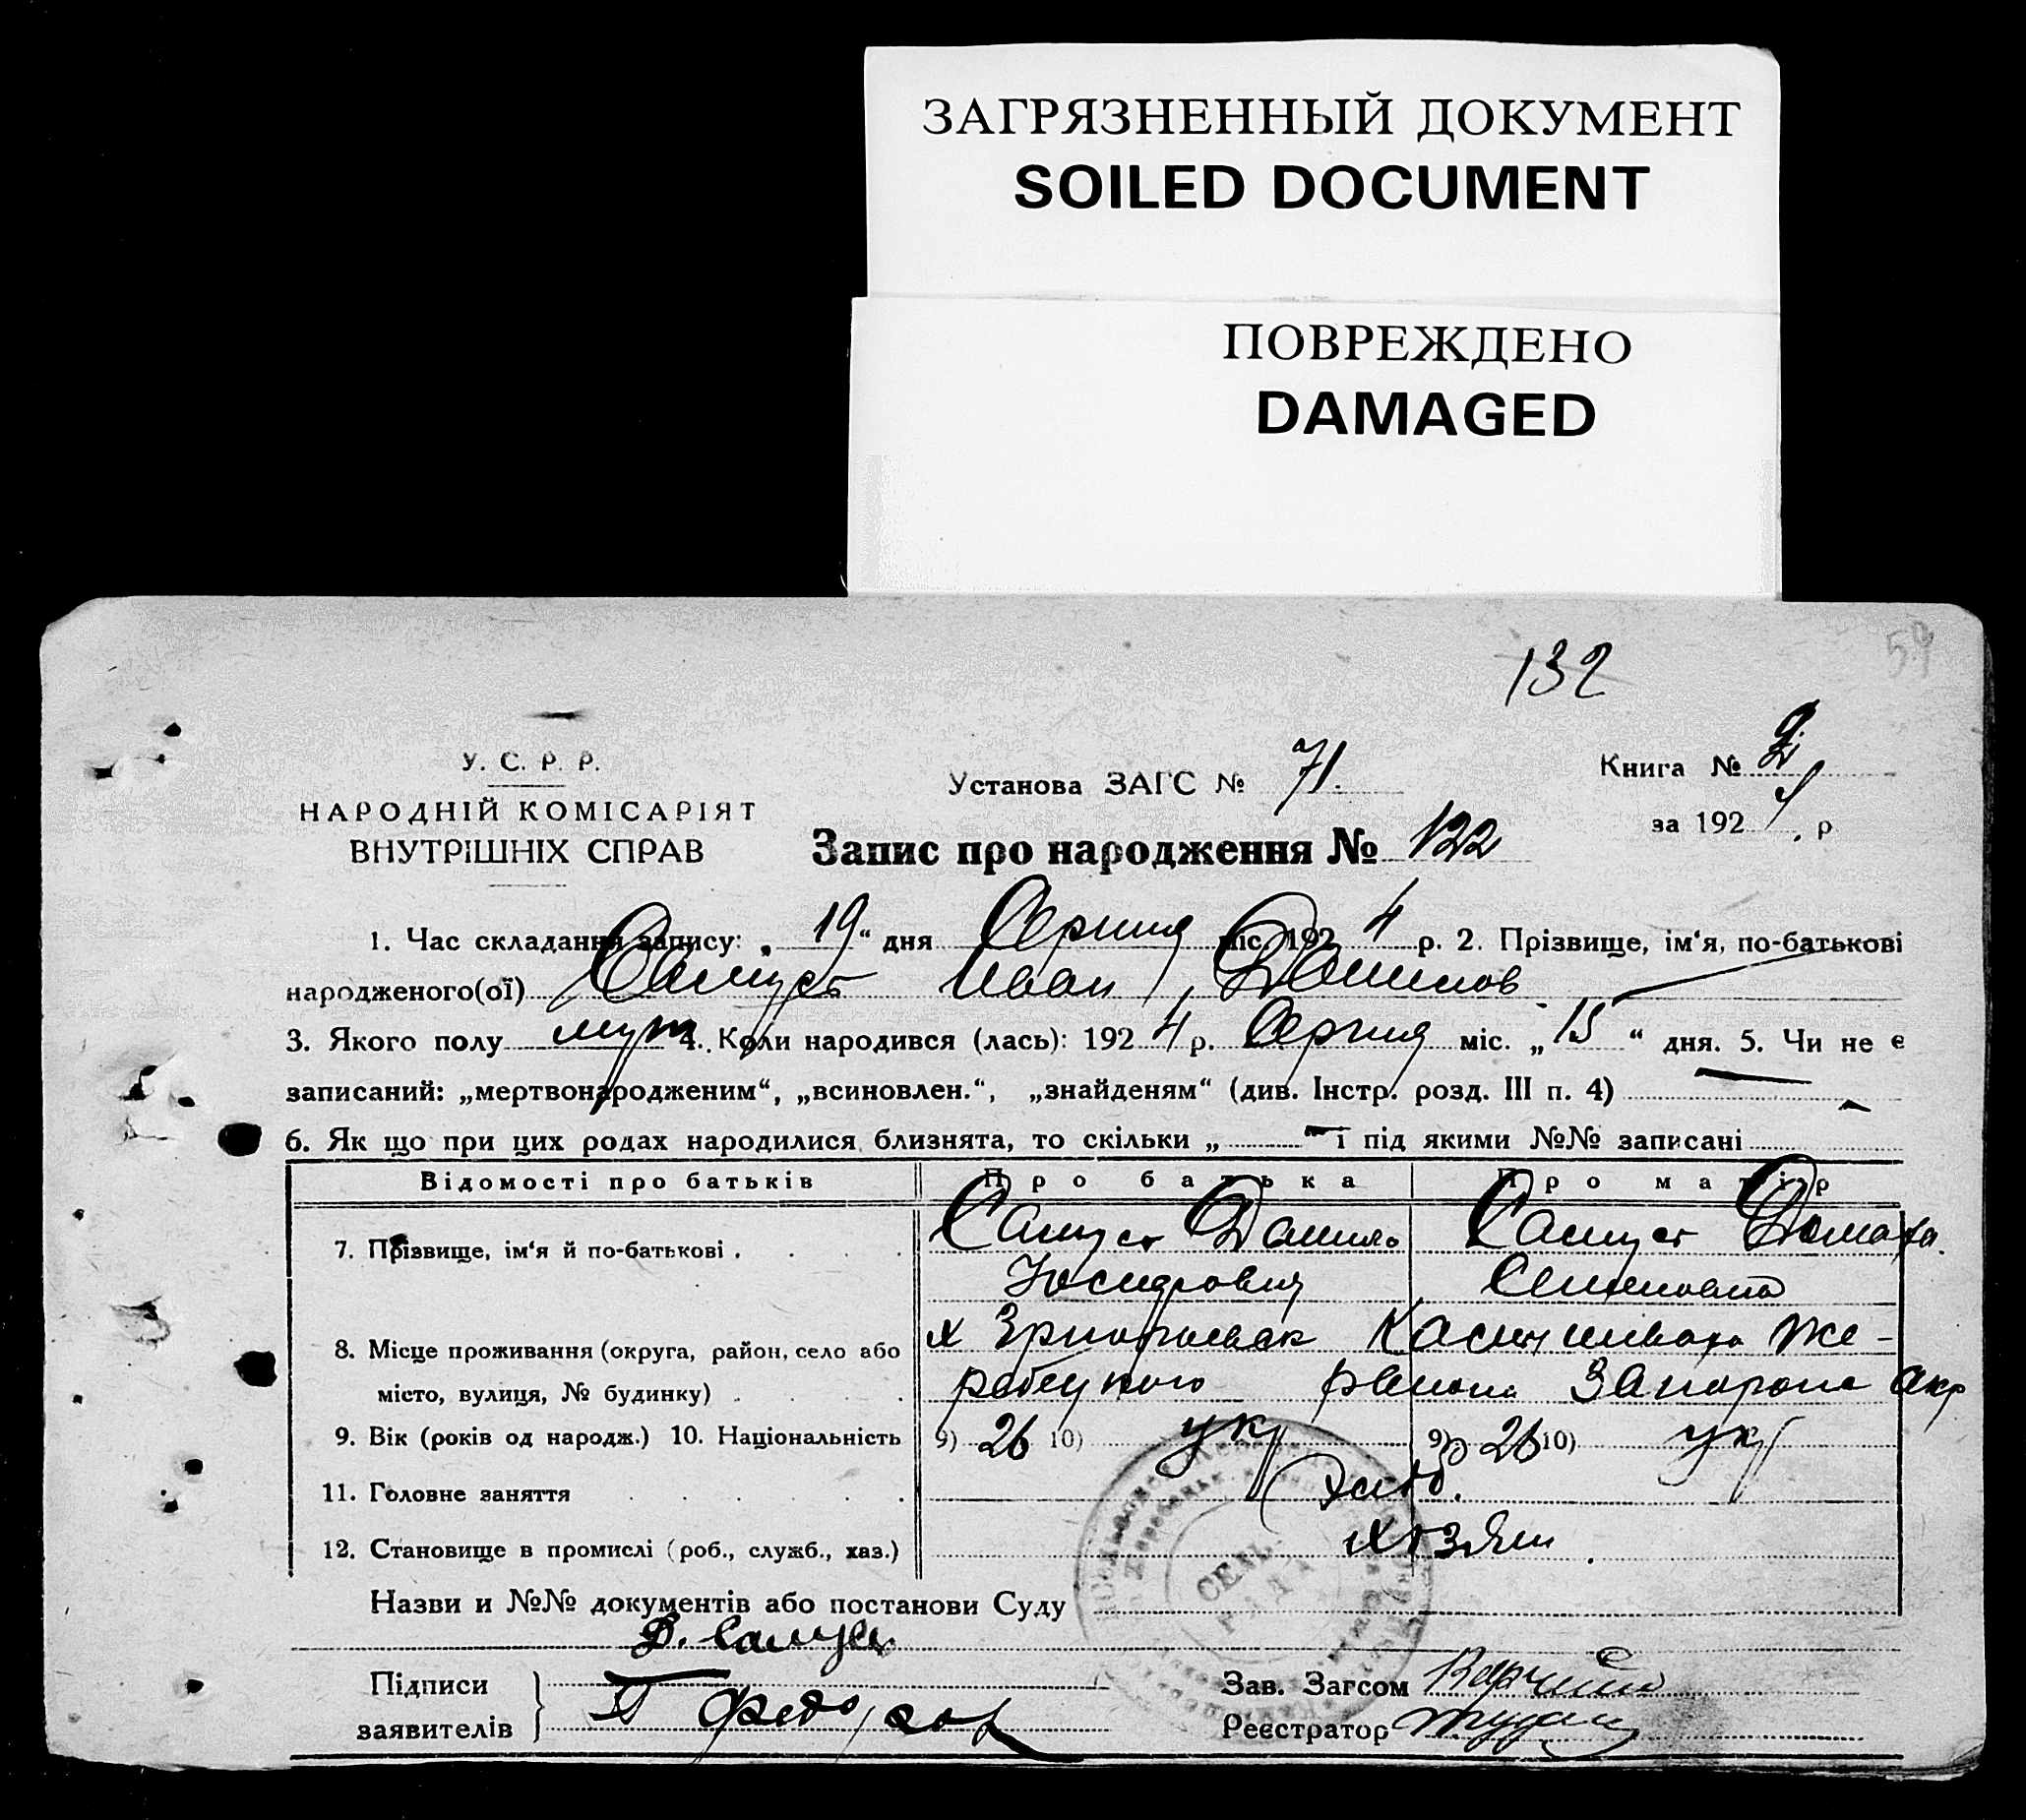 ЗАГРЯЗНЕННЫЙ ДОКУМЕНТ
SOILED DOCUMENT
ПОВРЕЖДЕНО
DAMAGED
59
132
У. С. Р. Р.
НАРОДНІЙ КОМІСАРІЯТ
ВНУТРІШНІХ СПРАВ
Установа ЗАГС № 71.
Книга № 2
за 1924 р
Запис про народження № 122
1. Час складання запису: „19“ дня Серпня міс. 1924 р. 2. Прізвище, ім‘я, по-батькові
народженого(ої) Самусь Иван Данилов
3. Якого полу муж 4. Коли народився (лась): 1924 р. Серпня міс. „15“ дня. 5. Чи не є
записаний: „мертвонародженим“, „всиновлен.“, „знайденям“ (див. Інстр. розд. III п. 4)
6. Як що при цих родах народилися близнята, то скільки „ — “ і під якими №№ записані
Відомості про батьків Про батька Про матір
7. Прізвище, ім‘я й по-батькові . Самусь Данило Самусь Домаха
Семеновна
8. Місце проживання (округа, район, село або х Же-
місто, вулиця, № будинку) . ребецкого района Запорож окр
9. Вік (років од народж.) 10. Національність 9) 26 10) укр 9) 26 10) укр
11. Головне заняття
12. Становище в промислі (роб., служб., хаз.) хозяин
Назви и №№ документів або постанови Суду
Д. Самусь
Підписи
заявителів
Зав. Загсом
Реєстратор
СЕЛЬ
РАДА